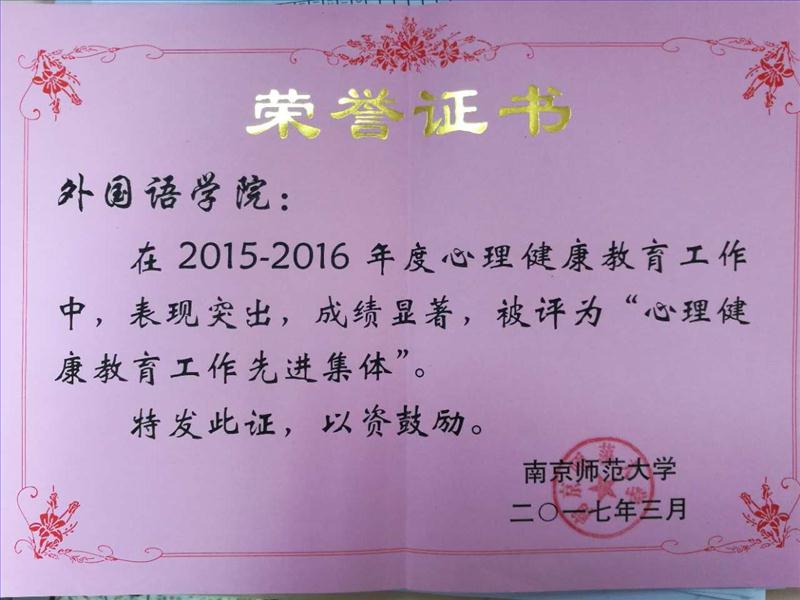 荣誉证书
外国语学院：
在 2015-2016 年度心理健康教育工作
中，表现突出，成绩显著，被评为“心理健
康教育工作先进集体”。
特发此证，以资鼓励。
南京师范大学
二〇一七年三月